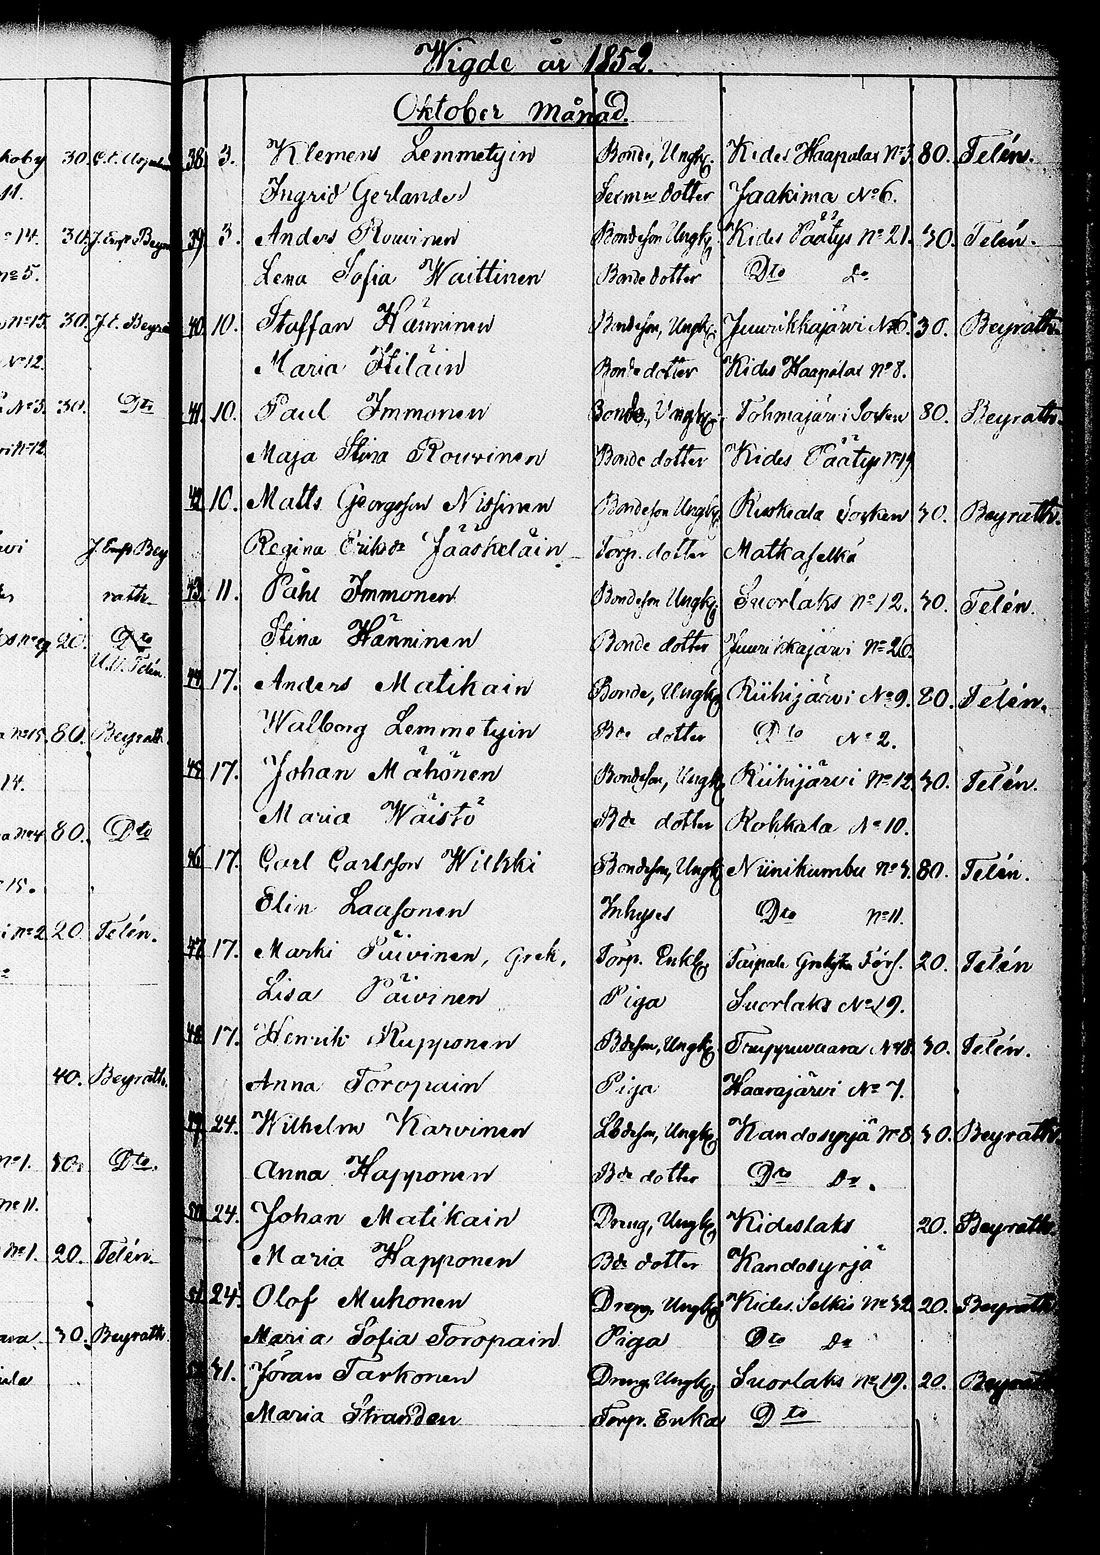 Wigde år 1852.
Oktober Månad.
38. 3. Klemens Lemmetyin Bonde, Ungk. Kides Haapalax № 3. 80. Telén.
Ingrid Gerlander dotter Jaakima № 6.
39. 3. Anders Rouvinen Bondeson Ungk. Kides Päätys № 21. 30. Telén.
Lena Sofia Waittinen Bonde dotter Dto Do
40. 10. Staffan Hänninen Bondeson, Ungk. Juurikkajärvi № 6. 30. Beyrath.
Maria Hiläin Bonde dotter Kides Haapalax № 8.
41. 10. Paul Immonen Bonde, Ungk. Tohmajärvi Socken 80. Beyrath.
Maja Stina Rouvinen Bonde dotter Kides Päätys № 19
42. 10. Matts Georgsson Nissinen Bondeson Ungk. Ruskeala Socken 30. Beyrath.
Regina Eriksdr Jääskeläin Torp. dotter Matkaselkä
43. 11. Påhl Immonen Bondeson Ungk. Suorlaks № 12. 30. Telén.
Stina Hänninen Bonde dotter Juurikkajärvi № 26.
44. 17. Anders Matikain Bonde, Ungk. Riihijärvi № 9. 80. Telén.
Walborg Lemmetyin Bde dotter Dto № 2.
45. 17. Johan Mähönen Bondeson, Ungk. Riihijärvi № 12 30. Telén.
Maria Wäistö Bde dotter Rokkala № 10.
46. 17. Carl Carlsson Wilkki Bondeson, Ungk. Niinikumbu № 3. 80. Telén.
Elin Laasonen Inhyses Dto № 11.
47. 17. Marki Päivinen, Grek. Torp. Enkl. Taipale Grekiska Förs. 20. Telén
Lisa Päivinen Piga Suorlaks № 19.
48. 17. Henrik Rupponen Bdeson, Ungk. Truppuvaara № 48. 30. Telén.
Anna Toropain Piga Haarajärvi № 7.
49. 24. Wilhelm Karvinen Lbdeson, Ungk. Kandosyrjä № 8. 30. Beyrath.
Anna Happonen Bde dotter Dto Do.
50. 24. Johan Matikain Dreng, Ungk. Kideslaks 20. Beyrath.
Maria Happonen Bde dotter Kandosyrjä
51. 24. Olof Muhonen Dreng, Ungk. Kides. Selkis № 32. 20. Beyrath
Maria Sofia Toropain Piga Dto Do
31. Jöran Tarkonen Dreng, Ungk. Suorlaks № 19. 20. Beyrath
Maria Strandén Torp. Enka Dto
30.
11.
№ 14. 30.
№ 5.
№ 15. 30.
№ 12.
№ 3. 30. Dto
№ 12
rath.
20. Dto
Telén.
№ 15. 80. Beyrath.
14.
80. Dto
15.
№ 2 20. Telén.
40. Beyrath.
№ 1. 30. Dto.
№ 11.
№ 1. 20. Telén.
30. Beyrath.